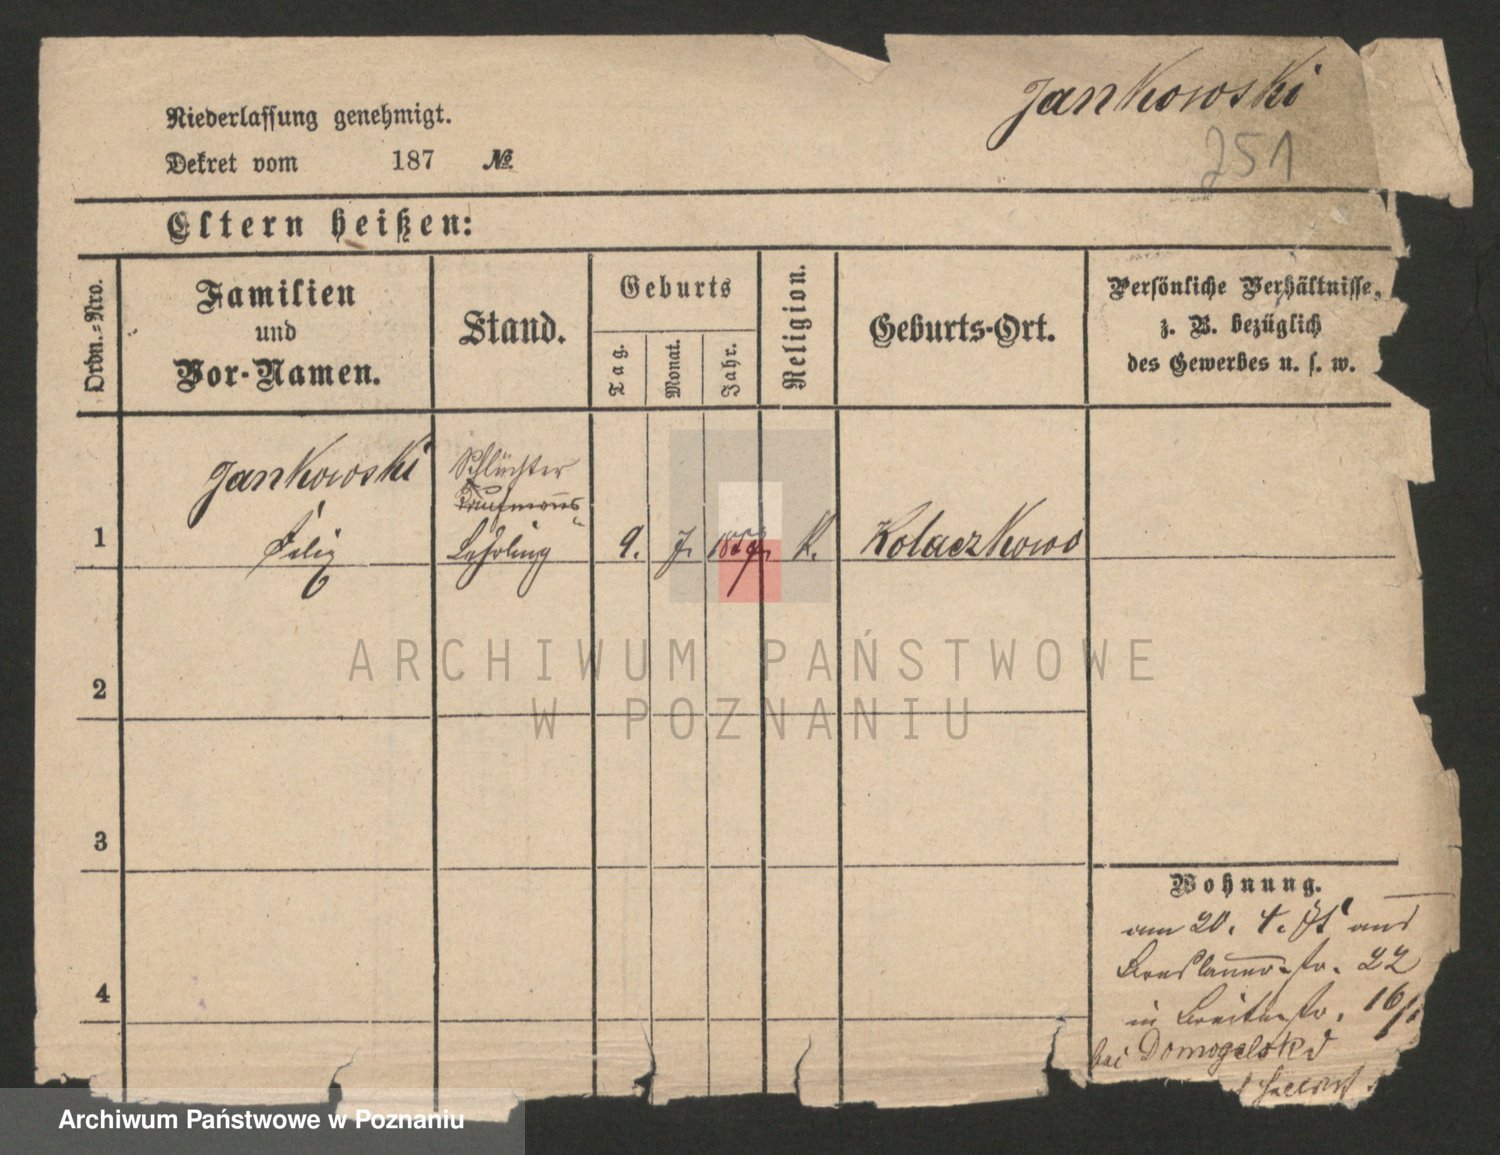 Jankowski
251
Niederlassung genehmigt.
Dekret vom 187 №
Eltern heißen:
Ordn.-Nro.
Familien
und
Vor-Namen.
Stand.
Geburts
Tag.
Monat.
Jahr.
Religion.
Geburts-Ort.
Persönliche Verhältnisse,
z. B. bezüglich
des Gewerbes u. s. w.
Jankowski
1 Felix
Kaufmanns
Lehrling
9. K. Kolaczkowo
2
ARCHIWUM PAŃSTWOWE
W POZNANIU
3
4
Wohnung.
am 20. 4. aus
Breslauer-str. 22
in Breitestr. 16/
bei Domogalski
Archiwum Państwowe w Poznaniu